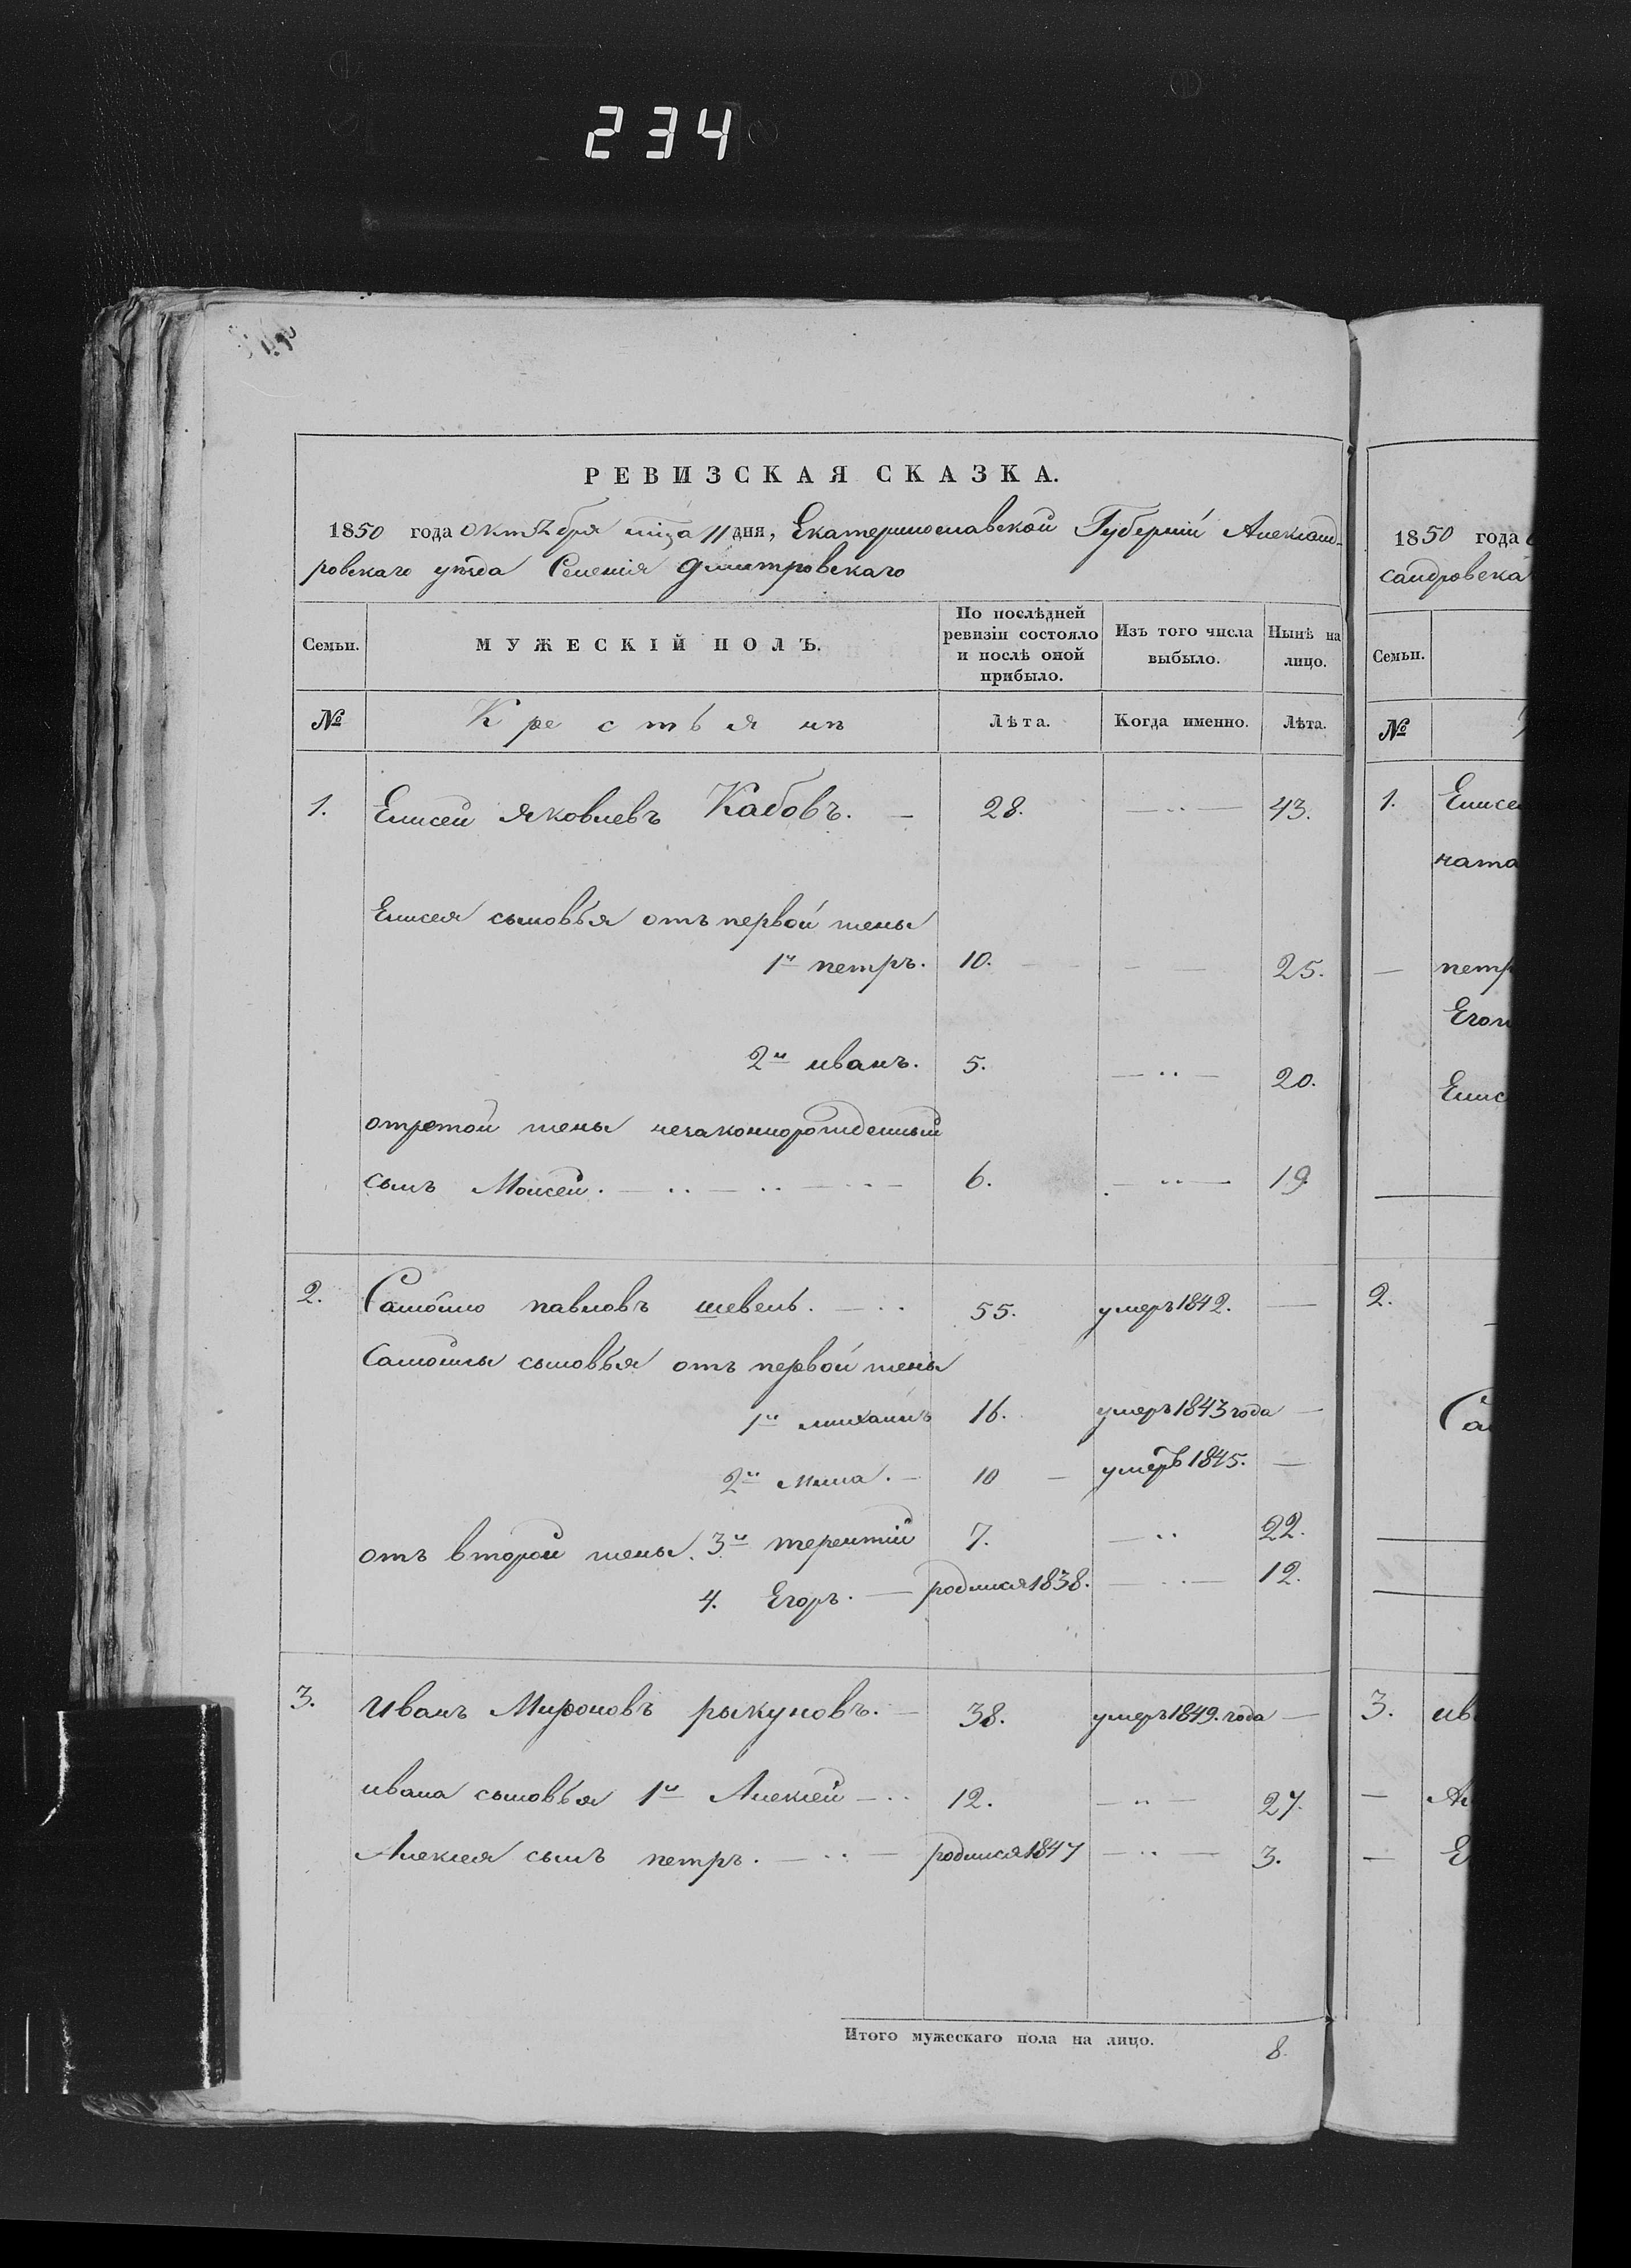 234
РЕВИЗСКАЯ СКАЗКА.
1850 года октября мца 11 дня, Екатеринославской Губерніи Александ-
ровскаго уѣзда Селенія Дмитровскаго
Семьи.
МУЖЕСКІЙ ПОЛЪ.
По послѣдней ревизіи состояло и послѣ оной прибыло.
Изъ того числа выбыло.
Нынѣ на лицо.
№ Крестьянъ Лѣта. Когда именно. Лѣта.
1. Елисей Яковлевъ Кабовъ. 28. 43.
Елисея сыновья отъ первой жены
1й петръ. 10. 25.
2й иванъ. 5. 20.
отретой жены незаконнорожденный
сынъ Моисей. 6. 19
2. Самойло павловъ шевель. 55. умеръ 1842.
Самойлы сыновья отъ первой жены
1й михаилъ 16. умеръ 1843 года
2й Мина. 10 умеръ 1845.
отъ второй жены. 3й терентій 7. 22.
4. Егоръ. родился 1838. 12.
3. Иванъ Мироновъ рыкуновъ. 38. умеръ 1849. года
ивана сыновья 1й Алексѣй 12. 27.
Алексея сынъ петръ. родился 1847 3.
Итого мужескаго пола на лицо. 8.
1850 года
сандровска
Семьи.
№
1. Елисе
ната
петр
Егож
Елис
2.
Са
3. ив
Ал
Е